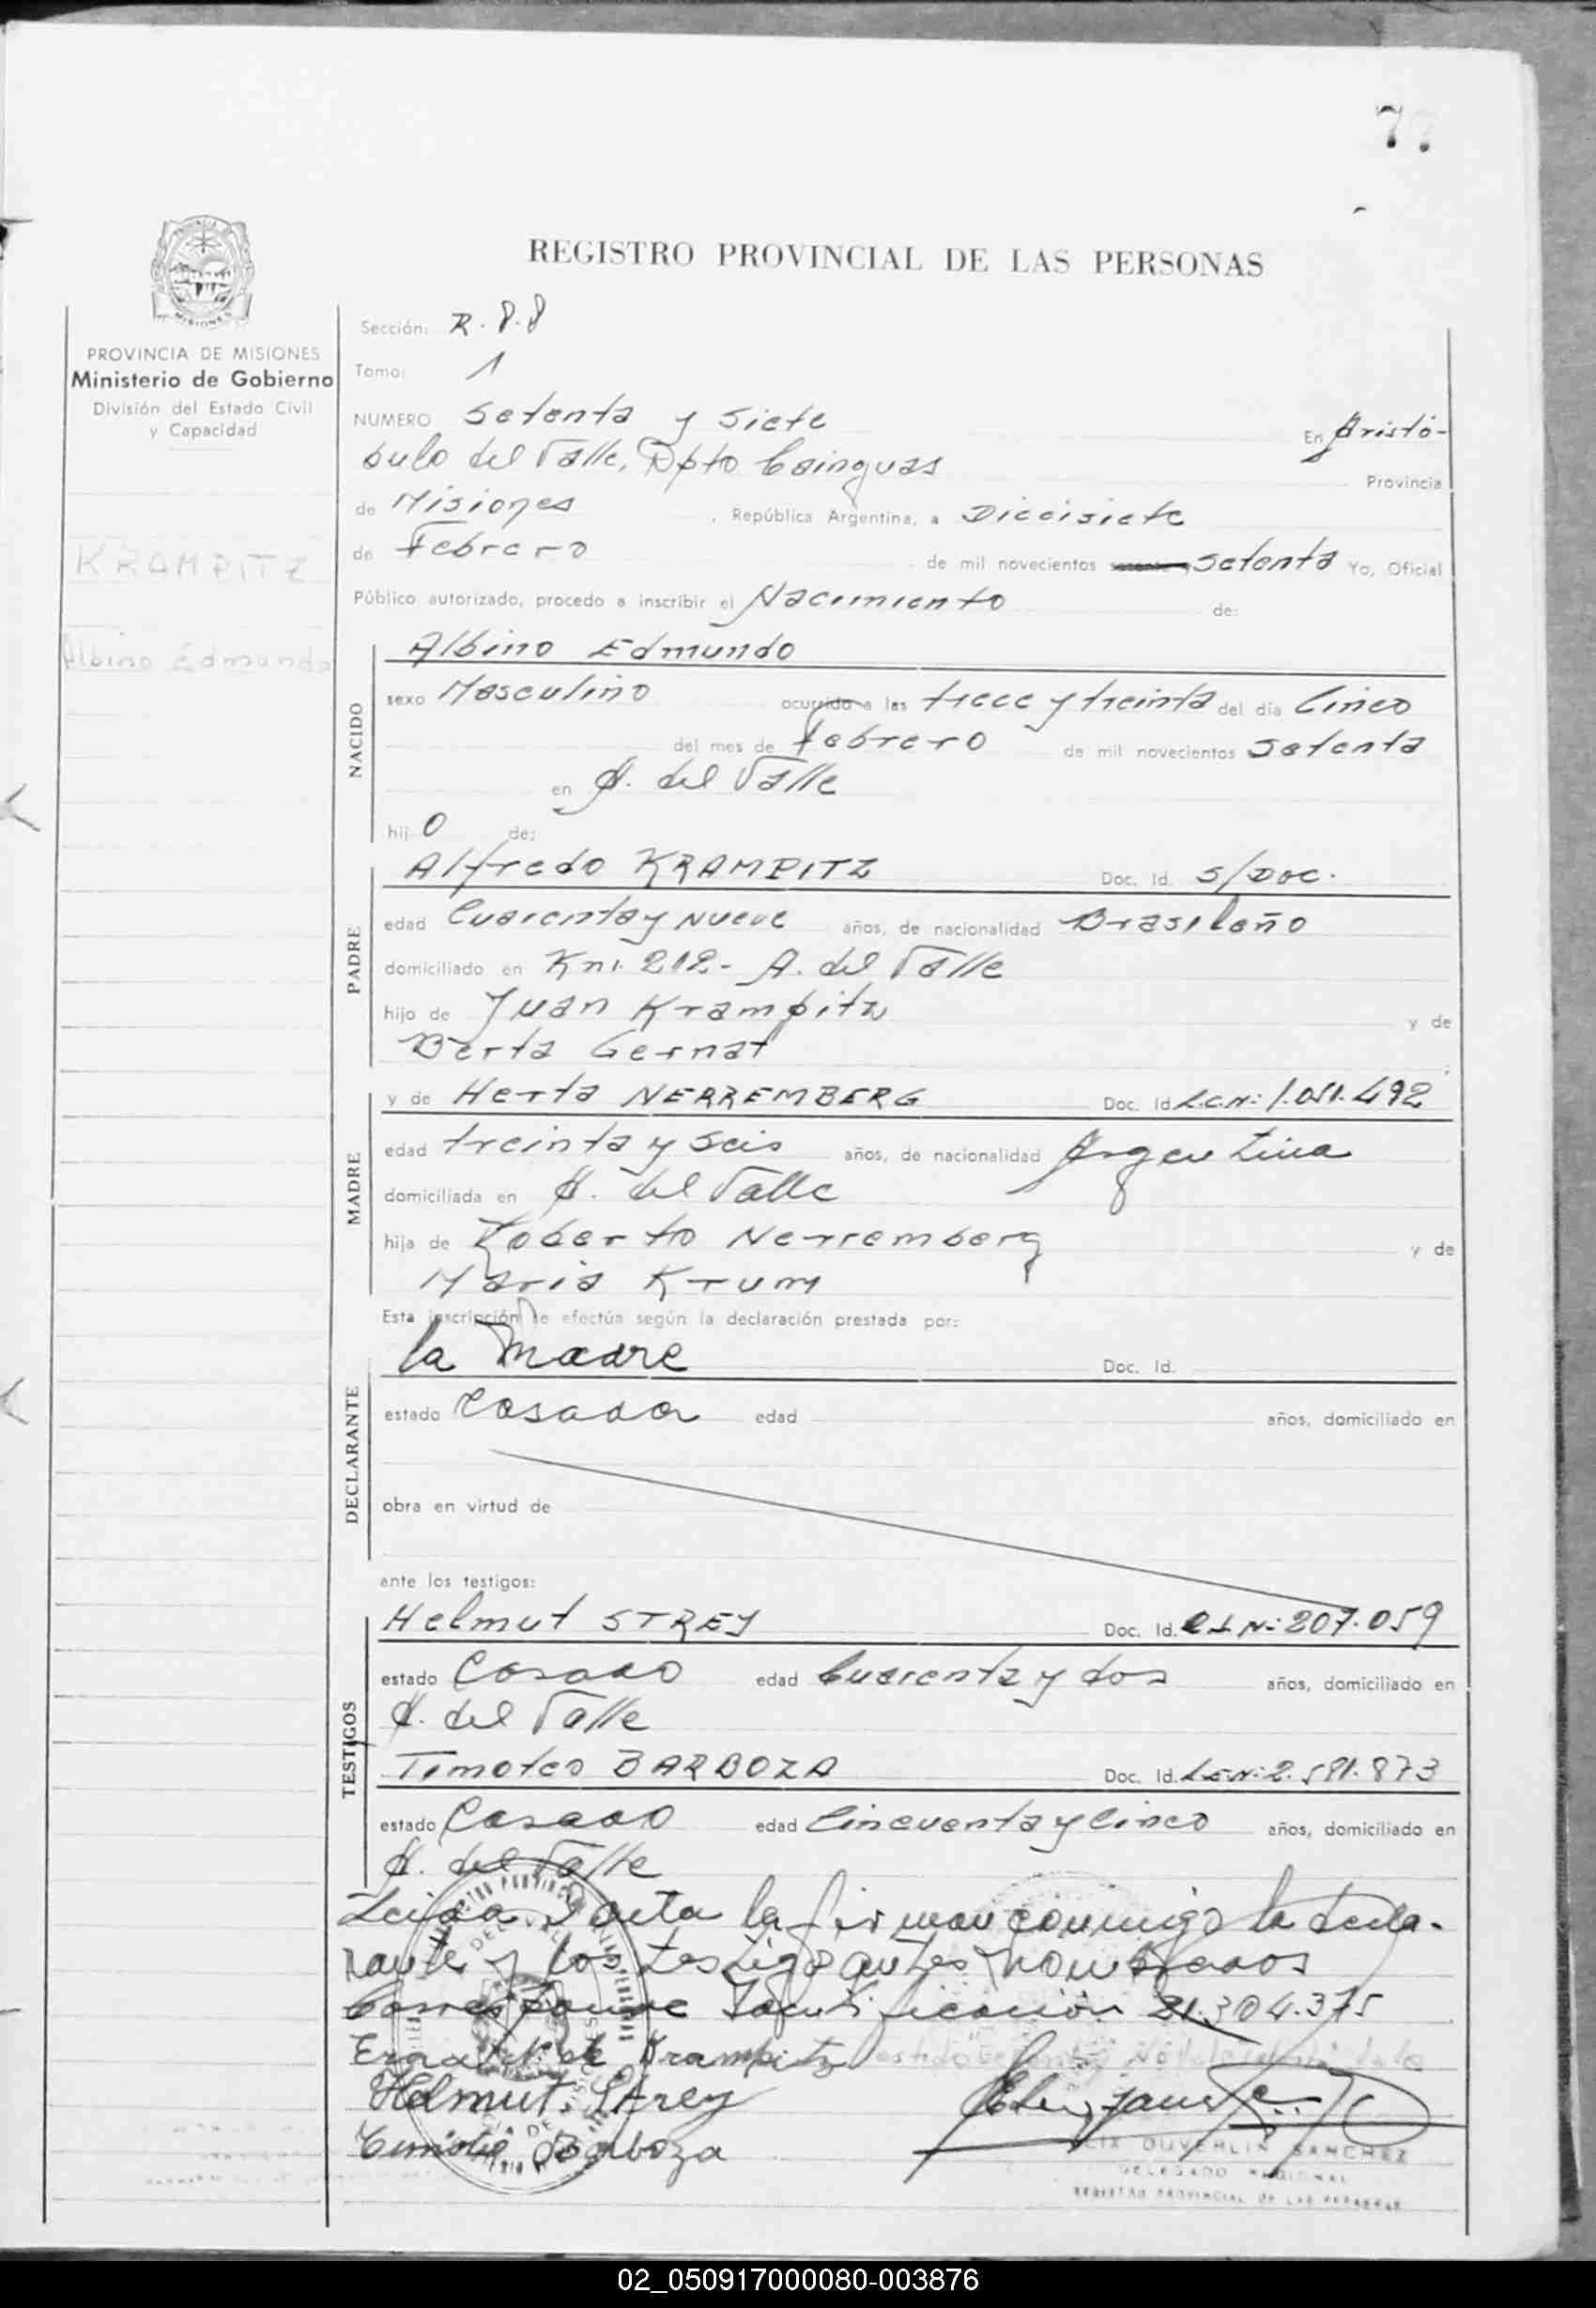 77
REGISTRO PROVINCIAL DE LAS PERSONAS
MISIONES
PROVINCIA DE MISIONES
Ministerio de Gobierno
División del Estado Civil
y Capacidad
KRAMPITZ
Albino Edmundo
Sección: R. 8.8
Tomo: 1
NUMERO Setenta y Siete En Aristó-
bulo del Valle, Dpto Cainguas Provincia
de Misiones , República Argentina, a Diecisiete
de Febrero de mil novecientos setenta Yo, Oficial
Público autorizado, procedo a inscribir el Nacimiento de:
NACIDO
Albino Edmundo
sexo Masculino ocurrido a las trece y treinta del día Cinco
del mes de febrero de mil novecientos setenta
en A. del Valle
hij o de:
PADRE
Alfredo KRAMPITZ Doc. Id. S/Doc.
edad Cuarenta y Nueve años, de nacionalidad Brasileño
domiciliado en Km. 212- A. del Valle
hijo de Juan Krampitz y de
Berta Gernat
MADRE
y de Herta NERREMBERG Doc. Id. L.C.N: 1.051.492
edad treinta y seis años, de nacionalidad Argentina
domiciliada en A. del Valle
hija de Roberto Nerremberg y de
Maria Krum
Esta inscripción se efectúa según la declaración prestada por:
DECLARANTE
la Madre Doc. Id.
estado Casada edad años, domiciliado en
obra en virtud de
ante los testigos:
TESTIGOS
Helmut STREY Doc. Id. C.I.N: 207.059
estado Casado edad Cuarenta y dos años, domiciliado en
A. del Valle
Timoteo BARBOZA Doc. Id. L.E.N: 2.581.873
estado Casado edad Cincuenta y Cinco años, domiciliado en
A. del Valle
Leida el acta la firman conmigo la decla-
rante y los testigos antes nombrados
Corresponde Identificación 21.304.375
de Krampitz
Helmut Strey
Timoteo Barboza
DUVERLIN SANCHEZ
DELEGADO REGIONAL
REGISTRO PROVINCIAL DE LAS PERSONAS
02_050917000080-003876